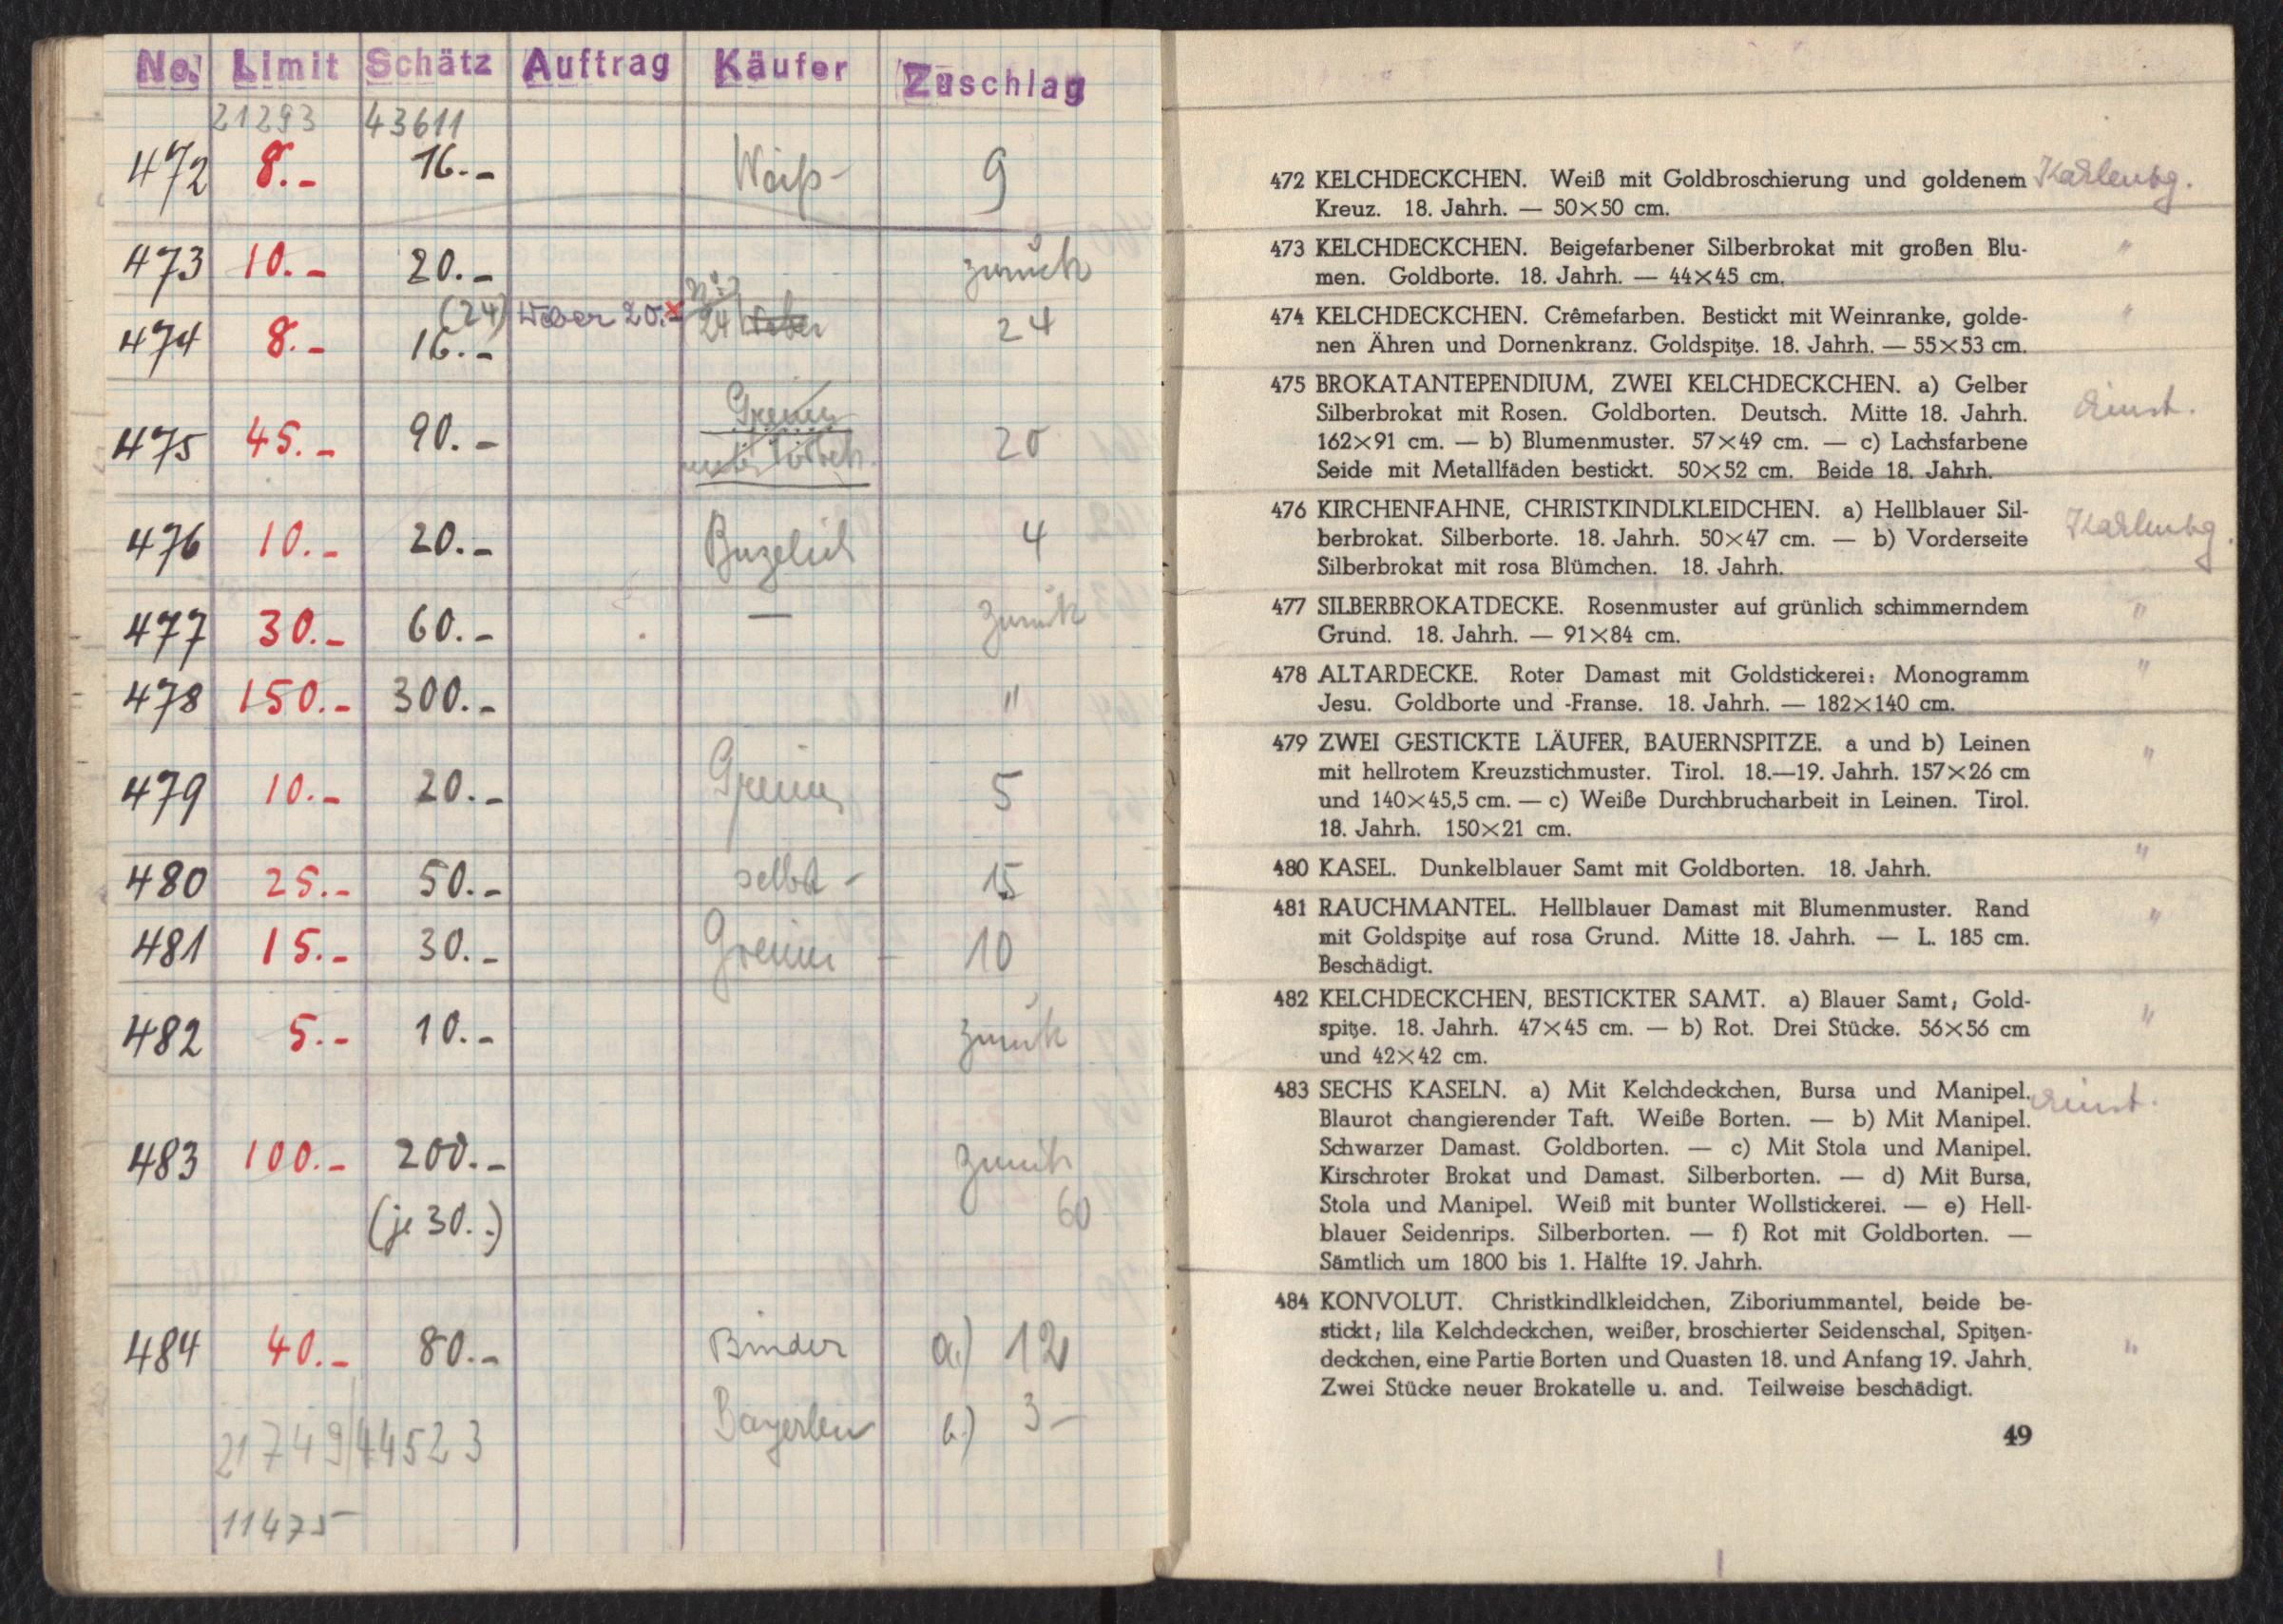 No. Limit Schätz Auftrag Käufer Zuschlag
21293 43611
472 8.- 16.- Weiß - 9
473 10.- 20.- zurück
474 8.- (24) 16.- Weber 20.- 24 24
475 45.- 90.- 20
476 10.- 20.- 4
477 30.- 60.- — zurück
478 150.- 300.- "
479 10.- 20.- Greiner 5
480 25.- 50.- selbst - 15
481 15.- 30.- Greiner - 10
482 5.- 10.- zurück
483 100.- 200.- zurück
(je 30.-) 60
484 40.- 80.- Binder a.) 12
Bayerlein b.) 3 -
21749 44523
11475
472 KELCHDECKCHEN. Weiß mit Goldbroschierung und goldenem
Kreuz. 18. Jahrh. — 50×50 cm.
473 KELCHDECKCHEN. Beigefarbener Silberbrokat mit großen Blu- "
men. Goldborte. 18. Jahrh. — 44×45 cm.
474 KELCHDECKCHEN. Crêmefarben. Bestickt mit Weinranke, golde- "
nen Ähren und Dornenkranz. Goldspitze. 18. Jahrh. — 55×53 cm.
475 BROKATANTEPENDIUM, ZWEI KELCHDECKCHEN. a) Gelber
Silberbrokat mit Rosen. Goldborten. Deutsch. Mitte 18. Jahrh.
162×91 cm. — b) Blumenmuster. 57×49 cm. — c) Lachsfarbene
Seide mit Metallfäden bestickt. 50×52 cm. Beide 18. Jahrh.
476 KIRCHENFAHNE, CHRISTKINDLKLEIDCHEN. a) Hellblauer Sil-
berbrokat. Silberborte. 18. Jahrh. 50×47 cm. — b) Vorderseite
Silberbrokat mit rosa Blümchen. 18. Jahrh.
477 SILBERBROKATDECKE. Rosenmuster auf grünlich schimmerndem "
Grund. 18. Jahrh. — 91×84 cm.
478 ALTARDECKE. Roter Damast mit Goldstickerei: Monogramm "
Jesu. Goldborte und -Franse. 18. Jahrh. — 182×140 cm.
479 ZWEI GESTICKTE LÄUFER, BAUERNSPITZE. a und b) Leinen "
mit hellrotem Kreuzstichmuster. Tirol. 18.—19. Jahrh. 157×26 cm
und 140×45,5 cm. — c) Weiße Durchbrucharbeit in Leinen. Tirol.
18. Jahrh. 150×21 cm.
480 KASEL. Dunkelblauer Samt mit Goldborten. 18. Jahrh. "
481 RAUCHMANTEL. Hellblauer Damast mit Blumenmuster. Rand "
mit Goldspitze auf rosa Grund. Mitte 18. Jahrh. — L. 185 cm.
Beschädigt.
482 KELCHDECKCHEN, BESTICKTER SAMT. a) Blauer Samt; Gold- "
spitze. 18. Jahrh. 47×45 cm. — b) Rot. Drei Stücke. 56×56 cm
und 42×42 cm.
483 SECHS KASELN. a) Mit Kelchdeckchen, Bursa und Manipel.
Blaurot changierender Taft. Weiße Borten. — b) Mit Manipel.
Schwarzer Damast. Goldborten. — c) Mit Stola und Manipel.
Kirschroter Brokat und Damast. Silberborten. — d) Mit Bursa,
Stola und Manipel. Weiß mit bunter Wollstickerei. — e) Hell-
blauer Seidenrips. Silberborten. — f) Rot mit Goldborten. —
Sämtlich um 1800 bis 1. Hälfte 19. Jahrh.
484 KONVOLUT. Christkindlkleidchen, Ziboriummantel, beide be-
stickt; lila Kelchdeckchen, weißer, broschierter Seidenschal, Spitzen- "
deckchen, eine Partie Borten und Quasten 18. und Anfang 19. Jahrh.
Zwei Stücke neuer Brokatelle u. and. Teilweise beschädigt.
49